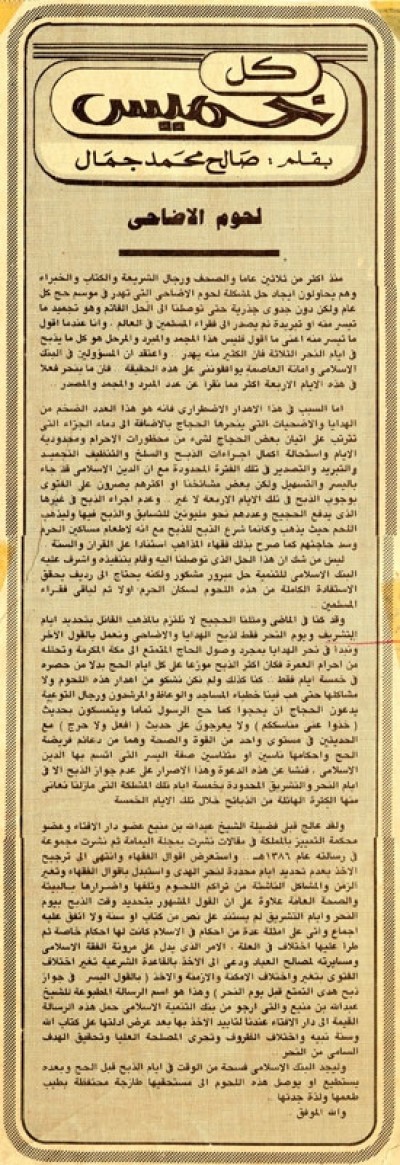 كل
خميس
بقلم : صالح محمد جمال
لحوم الاضاحى
منذ اكثر من ثلاثين عاما والصحف ورجال الشريعة والكتاب والخبراء
وهم يحاولون ايجاد حل لمشكلة لحوم الاضاحى التى تهدر فى موسم حج كل
عام ولكن دون جدوى جذرية حتى توصلنا الى الحل القائم وهو تجميد ما
تيسر منه او تبريدة ثم يصدر الى فقراء المسلمين فى العالم .. وانا عندما اقول
ما تيسر منه اعنى ما اقول فليس هذا المجمد والمبرد والمرحل هو كل ما يذبح
فى ايام النحر الثلاثة فان الكثير منه يهدر .. واعتقد ان المسؤولين فى البنك
الاسلامى وامانة العاصمة يوافقوننى على هذه الحقيقة .. فان ما ينحر فعلا
فى هذه الايام الاربعة اكثر مما نقرأ عن عدد المبرد والمجمد والمصدر ..
اما السبب فى هذا الاهدار الاضطرارى فانه هو هذا العدد الضخم من
الهدايا والاضحيات التى ينحرها الحجاج بالاضافة الى دماء الجزاء التى
تترتب على اتيان بعض الحجاج لشىء من محظورات الاحرام ومحدودية
الايام واستحالة اكمال اجراءات الذبح والسلخ والتنظيف التجميد
والتبريد والتصدير فى تلك الفترة المحدودة مع ان الدين الاسلامى قد جاء
باليسر والتسهيل ولكن بعض مشائخنا او اكثرهم يصرون على الفتوى
بوجوب الذبح فى تلك الايام الاربعة لا غير .. وعدم اجراء الذبح فى غيرها
الذى يدفع الحجيج وعددهم نحو مليونين للتسابق والذبح فيها وليذهب
اللحم حيث يذهب وكانما شرع الذبح للذبح مع انه لاطعام مساكين الحرم
وسد حاجتهم كما صرح بذلك فقهاء المذاهب استنادا على القران والسنة .
ليس من شك ان هذا الحل الذى توصلنا اليه وقام بتنفيذه واشرف عليه
البنك الاسلامى للتنمية حل مبرور مشكور ولكنه يحتاج الى رديف يحقق
الاستفادة الكاملة من هذه اللحوم لسكان الحرم اولا ثم لباقى فقراء
المسلمين ..
وقد كنا فى الماضى ومثلنا الحجيج لا نلتزم بالمذهب القائل بتحديد ايام
التشريف ويوم النحر فقط لذبح الهدايا والاضاحى ونعمل بالقول الاخر
ونبدأ فى نحر الهدايا بمجرد وصول الحاج المتمتع الى مكة المكرمة وتحلله
من احرام العمرة فكان اكثر الذبح موزعا على كل ايام الحج بدلا من حصره
فى خمسة ايام فقط .. كنا كذلك ولم نكن نشكو من اهدار هذه اللحوم ولا
مشاكلها حتى هب فينا خطباء المساجد والوعاظ والمرشدون ورجال التوعية
يدعون الحجاج ان يحجوا كما حج الرسول تماما ويتمسكون بحديث
( خذوا عنى مناسككم ) ولا يعرجون على حديث ( افعل ولا حرج ) مع
الحديثين فى مستوى واحد من القوة والصحة وهما من دعائم فريضة
الحج واحكامها ناسين او متناسين صفة اليسر التى اتسم بها الدين
الاسلامى . فنشأ عن هذه الدعوة وهذا الاصرار على عدم جواز الذبح الا فى
ايام النحر والتشريق المحدودة بخمسة ايام تلك المشكلة التى مازلنا نعانى
منها الكثرة الهائلة من الذبائح خلال تلك الايام الخمسة
ولقد عالج قبل فضيلة الشيخ عبدالله بن منيع عضو دار الافتاء وعضو
محكمة التمييز بالمملكة فى مقالات نشرت بمجلة اليمامة ثم نشرت مجموعة
فى رسالته عام ١٣٨٦هـ .. واستعرض اقوال الفقهاء وانتهى الى ترجيح
الاخذ بعدم تحديد ايام محددة لنحر الهدى واستبدل باقوال الفقهاء وتغير
الزمن والمشاكل الناشئة من تراكم اللحوم وتلفها واضرارها بالبيئة
والصحة العامة علاوة على ان القول المشهور بتحديد وقت الذبح بيوم
النحر وايام التشريق لم يستند على نص من كتاب او سنة ولا اتفق عليه
اجماع واتى على امثلة عدة من احكام فى الاسلام كانت لها احكام خاصة ثم
طرأ عليها اختلاف فى العلة . الامر الذى يدل على مرونة الفقة الاسلامى
ومسايرته لمصالح العباد ودعى الى الاخذ بالقاعدة الشرعية تغير اختلاف
الفتوى بتغير واختلاف الامكنة والازمنة والاخذ ( بالقول اليسر فى جواز
ذبح هدى التمتع قبل يوم النحر ) وهذا هو اسم الرسالة المطبوعة للشيخ
عبدالله بن منيع والتى ارجو من بنك التنمية الاسلامى حمل هذه الرسالة
القيمة الى دار الافتاء عندنا لتأييد الاخذ بها بعد عرض ادلتها على كتاب الله
وسنة نبيه واختلاف الظروف وتحرى المصلحة العليا وتحقيق الهدف
السامى من النحر ..
وليجد البنك الاسلامى فسحة من الوقت فى ايام الذبح قبل الحج وبعده
يستطيع او يوصل هذه اللحوم الى مستحقيها طازجة محتفظة بطيب
طعمها ولذة جدتها ..
والله الموفق